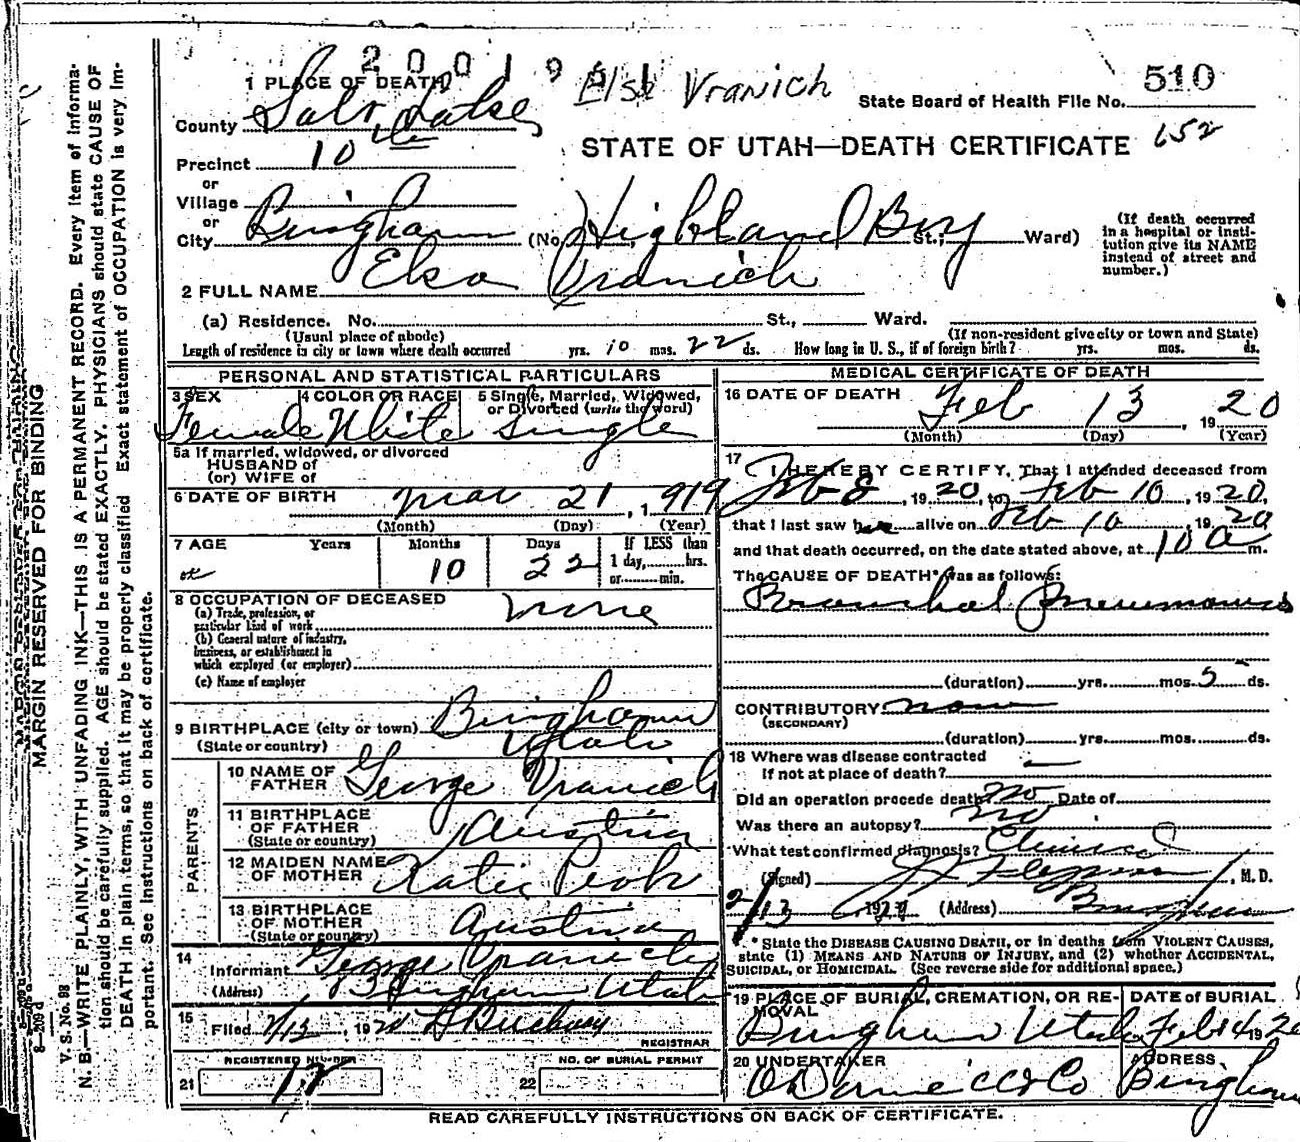 2001951
Else Vranich
1 PLACE OF DEATH
State Board of Health File No. 510
County Salt Lake
STATE OF UTAH—DEATH CERTIFICATE 152
Precinct 10
or
Village
or
City Bingham (No. Highland Boy St.; Ward)
(If death occurred in a hospital or institution give its NAME instead of street and number.)
2 FULL NAME Elsa Vranich
(a) Residence. No. St., Ward.
(Usual place of abode) (If non-resident give city or town and State)
Length of residence in city or town where death occurred yrs. 10 mos. 22 ds. How long in U. S., if of foreign birth? yrs. mos. ds.
PERSONAL AND STATISTICAL PARTICULARS
3 SEX 4 COLOR OR RACE 5 Single, Married, Widowed, or Divorced (write the word)
Female White Single
5a If married, widowed, or divorced
HUSBAND of
(or) WIFE of
6 DATE OF BIRTH Mar 21, 1919
(Month) (Day) (Year)
7 AGE Years Months Days If LESS than
10 22 1 day, hrs.
or min.
8 OCCUPATION OF DECEASED none
(a) Trade, profession, or
particular kind of work
(b) General nature of industry,
business, or establishment in
which employed (or employer)
(c) Name of employer
9 BIRTHPLACE (city or town) Bingham
(State or country) Utah
PARENTS
10 NAME OF FATHER George Vranich
11 BIRTHPLACE OF FATHER Austria
(State or country)
12 MAIDEN NAME OF MOTHER Katie
13 BIRTHPLACE OF MOTHER Austria
(State or country)
14 Informant George Vranich
(Address) Bingham Utah
15 Filed 2/13, 1920
REGISTRAR
REGISTERED NUMBER NO. OF BURIAL PERMIT
21 12 22
MEDICAL CERTIFICATE OF DEATH
16 DATE OF DEATH Feb 13, 1920
(Month) (Day) (Year)
17 I HEREBY CERTIFY, That I attended deceased from
Feb 8, 1920, to Feb 10, 1920,
that I last saw her alive on Feb 10, 1920
and that death occurred, on the date stated above, at 10 a m.
The CAUSE OF DEATH* was as follows:
Bronchal Pneumonia
(duration) yrs. mos. 5 ds.
CONTRIBUTORY none
(SECONDARY)
(duration) yrs. mos. ds.
18 Where was disease contracted
If not at place of death?
Did an operation precede death? no Date of
Was there an autopsy? no
What test confirmed diagnosis? Clinical
(Signed) , M. D.
2/13 (Address) Bingham
* State the DISEASE CAUSING DEATH, or in deaths from VIOLENT CAUSES,
state (1) MEANS AND NATURE OF INJURY, and (2) whether ACCIDENTAL,
SUICIDAL, or HOMICIDAL. (See reverse side for additional space.)
19 PLACE OF BURIAL, CREMATION, OR REMOVAL DATE OF BURIAL
Bingham Utah Feb 14 1920
20 UNDERTAKER ADDRESS
Bingham
READ CAREFULLY INSTRUCTIONS ON BACK OF CERTIFICATE.
MARGIN RESERVED FOR BINDING
V. S. No. 98
N. B.—WRITE PLAINLY, WITH UNFADING INK—THIS IS A PERMANENT RECORD. Every item of information should be carefully supplied. AGE should be stated EXACTLY. PHYSICIANS should state CAUSE OF DEATH in plain terms, so that it may be properly classified. Exact statement of OCCUPATION is very important. See instructions on back of certificate.